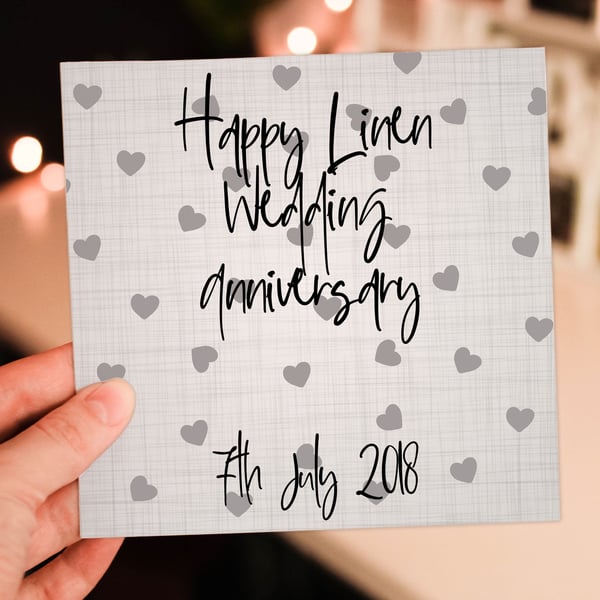 Happy Linen
Wedding
anniversary
7th July 2018